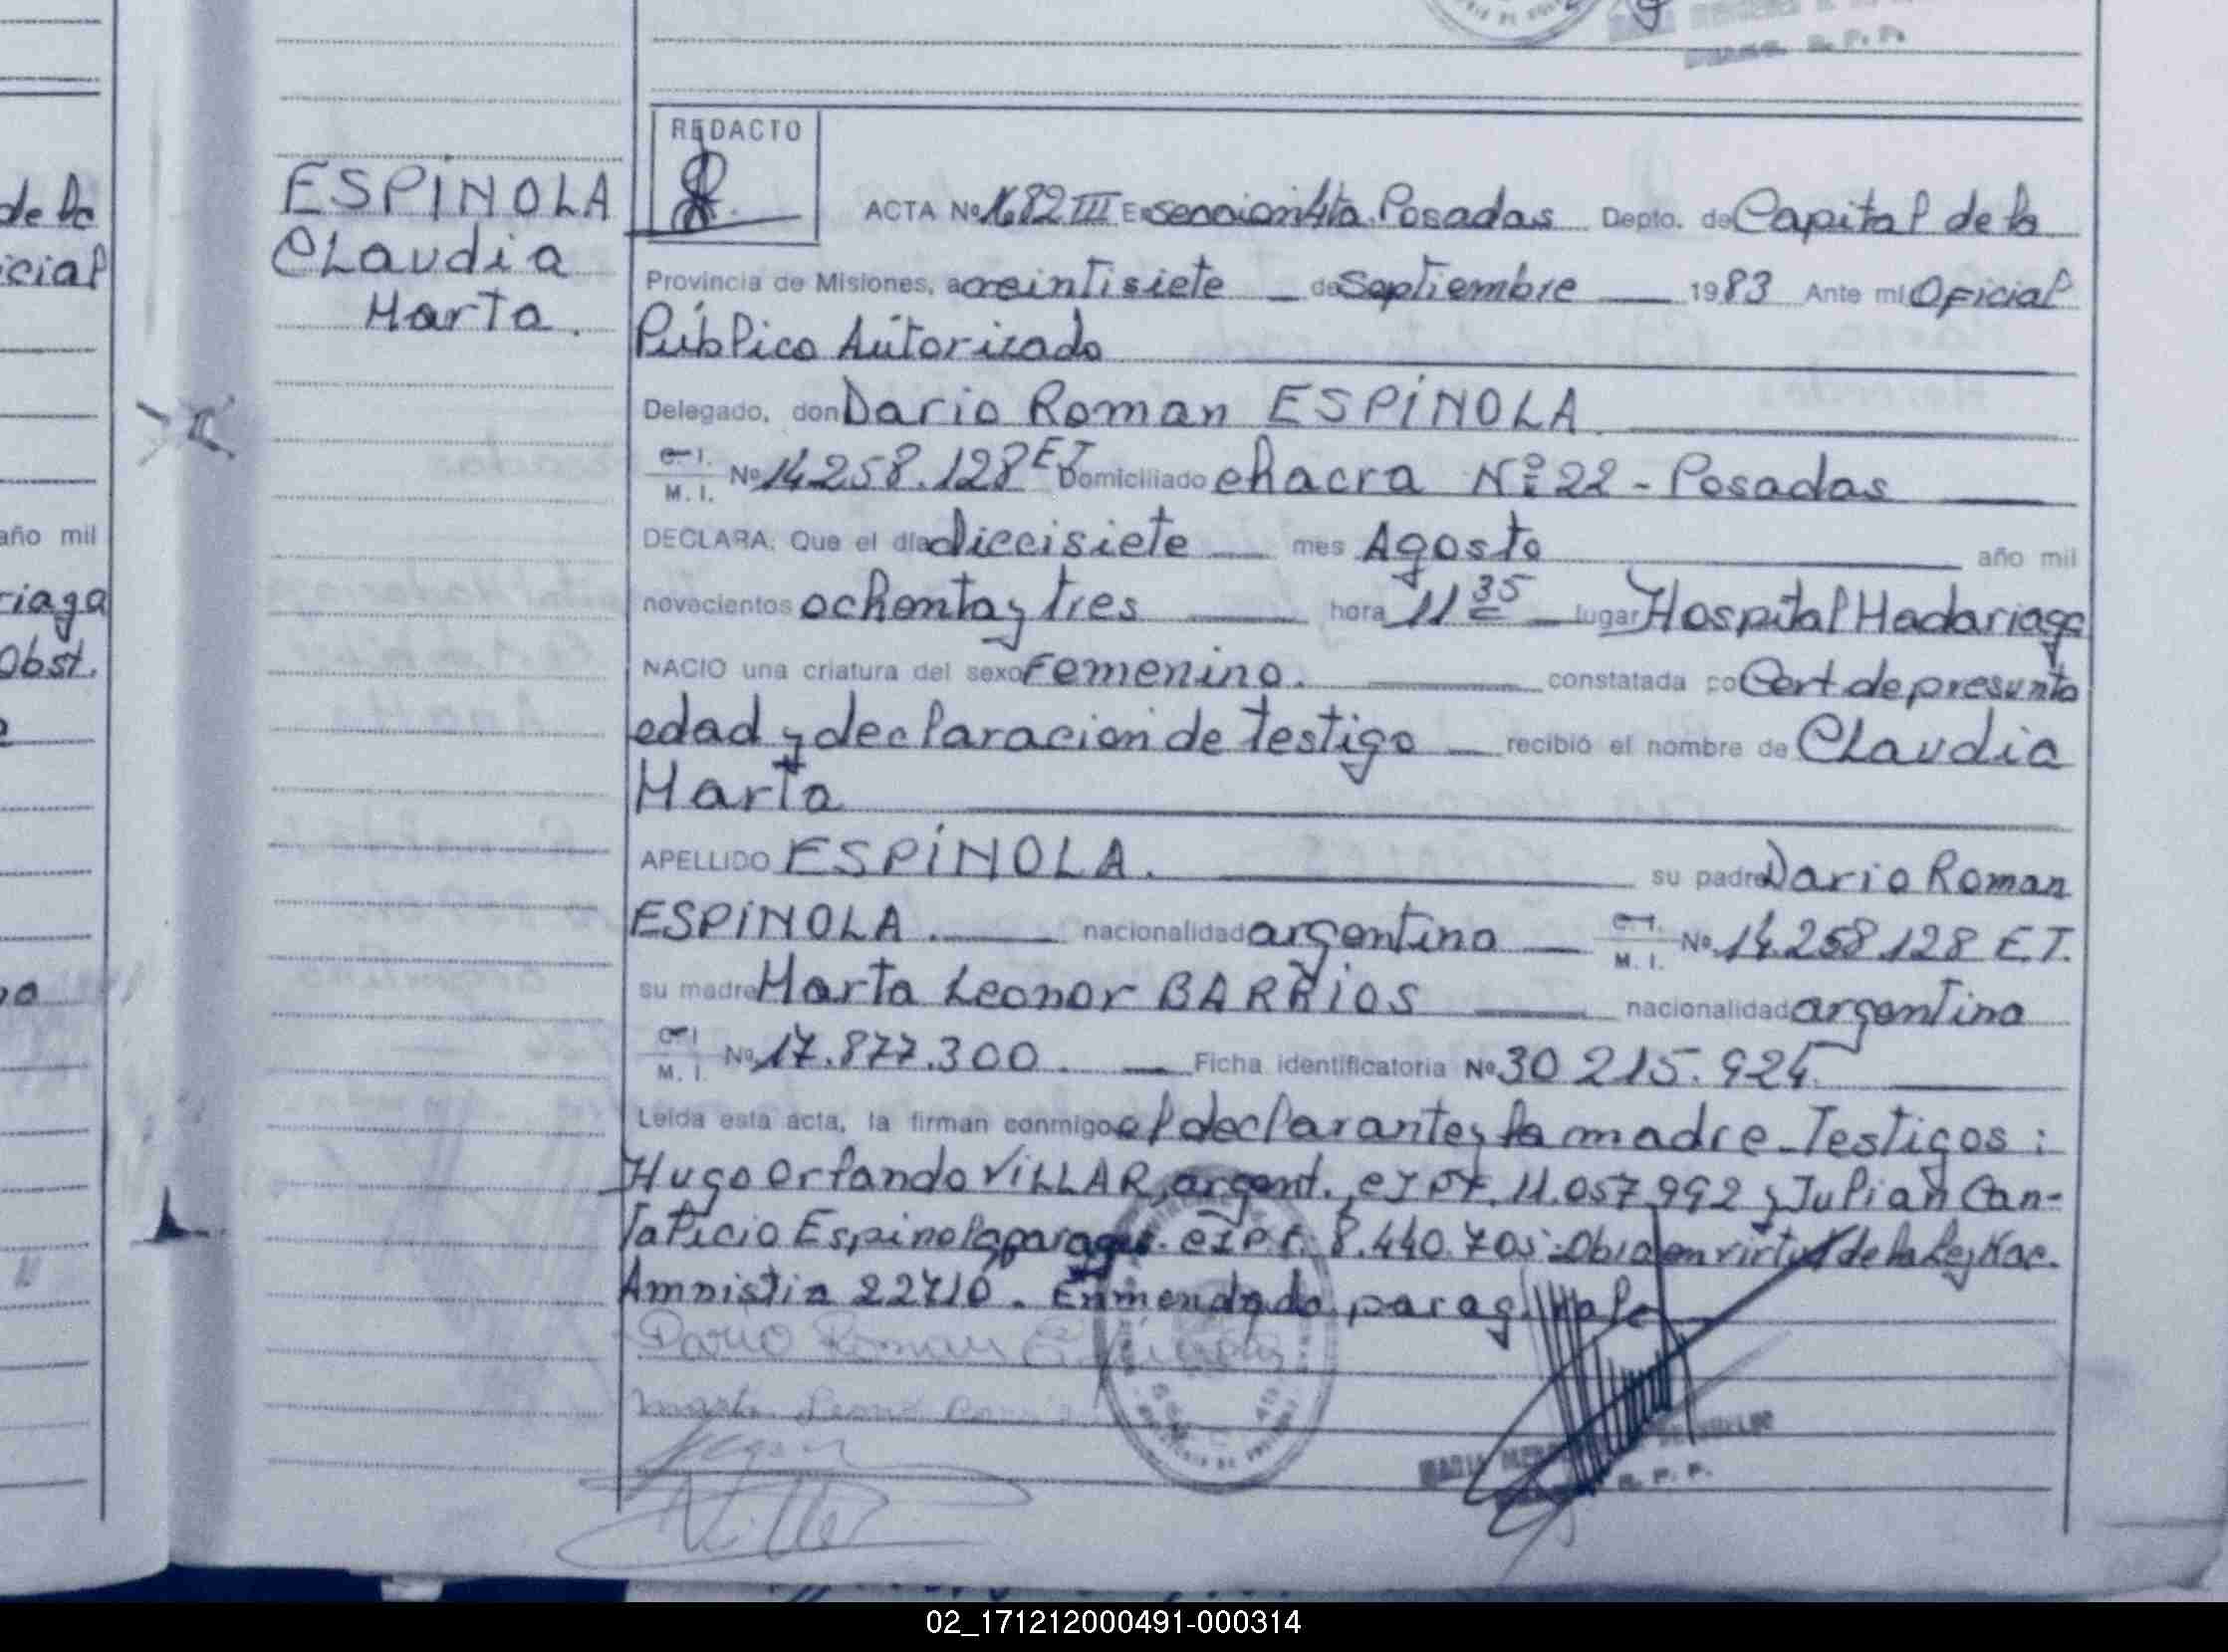 S. P. P.
REDACTO
ESPÍNOLA
CLaudia
Marta.
de la
icial
año mil
riaga
Obst.
ACTA Nº 1.682 III En sección 4ta. Posadas Depto. de Capital de la
Provincia de Misiones, a veintisiete de Septiembre 1983 Ante mi Oficial
Público Autorizado
Delegado, don Dario Roman ESPÍNOLA
C. I. / M. I. Nº 14.258.128 E.T Domiciliado chacra Nº 22 - Posadas
DECLARA: Que el día diecisiete mes Agosto año mil
novecientos ochenta y tres hora 11 35 lugar Hospital Madariaga
NACIO una criatura del sexo Femenino. constatada po Cert de presunta
edad y declaración de testigo recibió el nombre de CLaudia
Marta
APELLIDO ESPÍNOLA. su padre Dario Roman
ESPÍNOLA. nacionalidad argentino C. I. / M. I. Nº 14.258.128 E.T.
su madre Marta Leonor BARRIOS nacionalidad argentina
C. I. / M. I. Nº 17.877.300. Ficha identificatoria Nº 30 215.924.
Leida esta acta, la firman conmigo el declarante y la madre - Testigos:
Hugo Orlando VILLAR, argent. 11.057.992 y Julian Can-
talicio Espinola 8.440.705 en virtud de la Ley Nac.
Amnistia 22410. Enmendado parag. vale
Dario Roman Espinola
Marta Leonor
S. P. P.
02_171212000491-000314